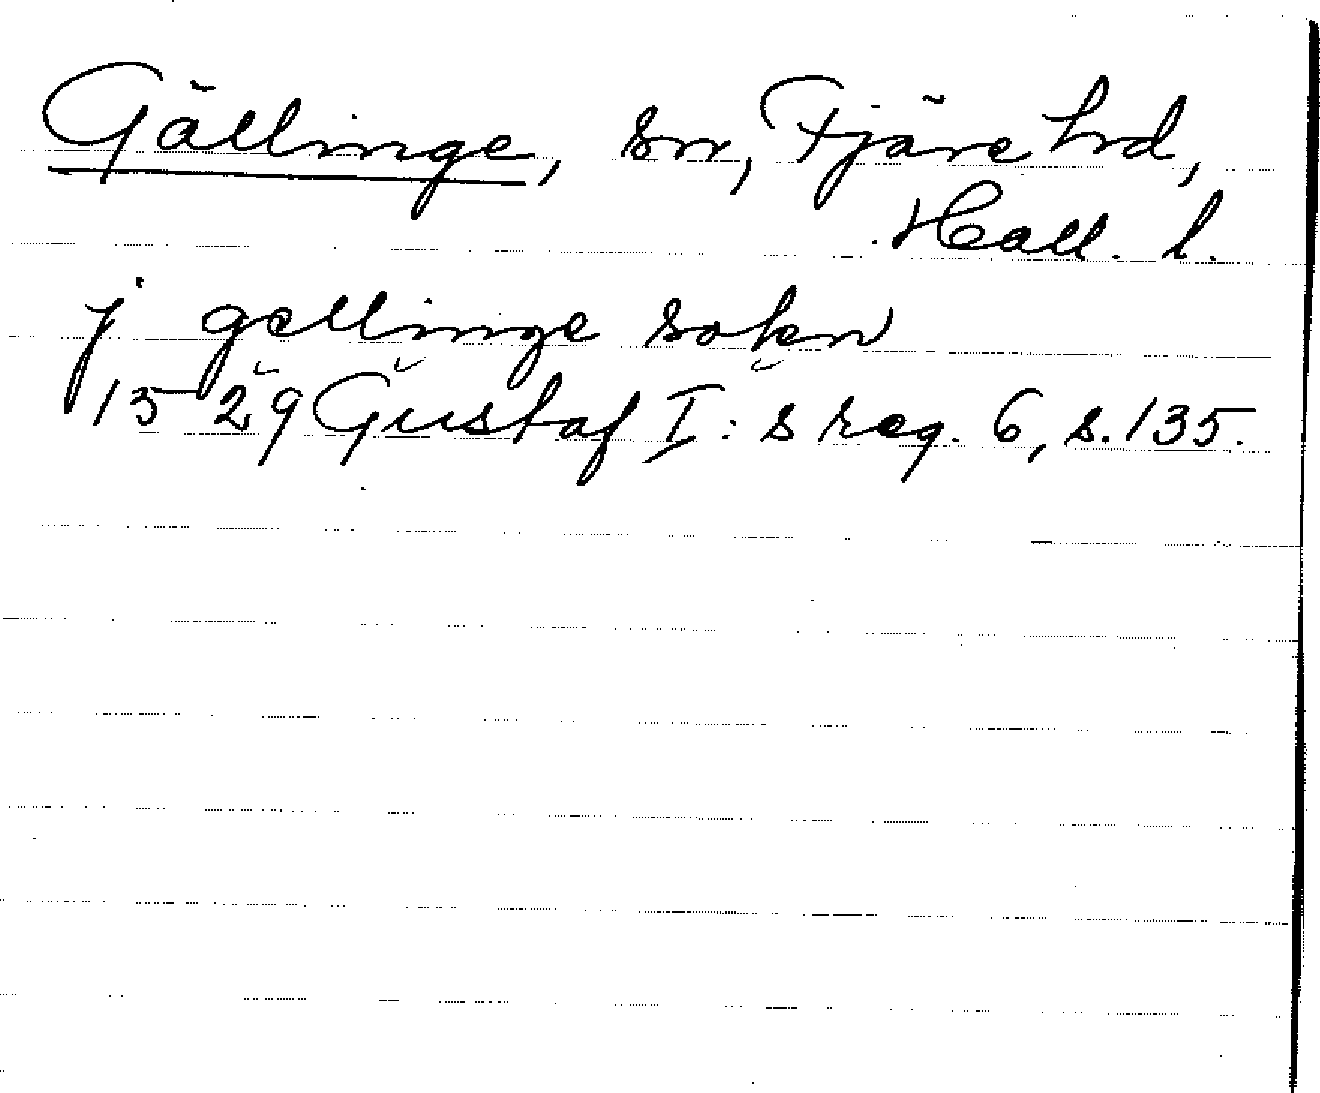 Gällinge, sn, Fjäre hd,
Hall. l.
j gellinge sokn
1529 Gustaf I:s reg. 6, s. 135.